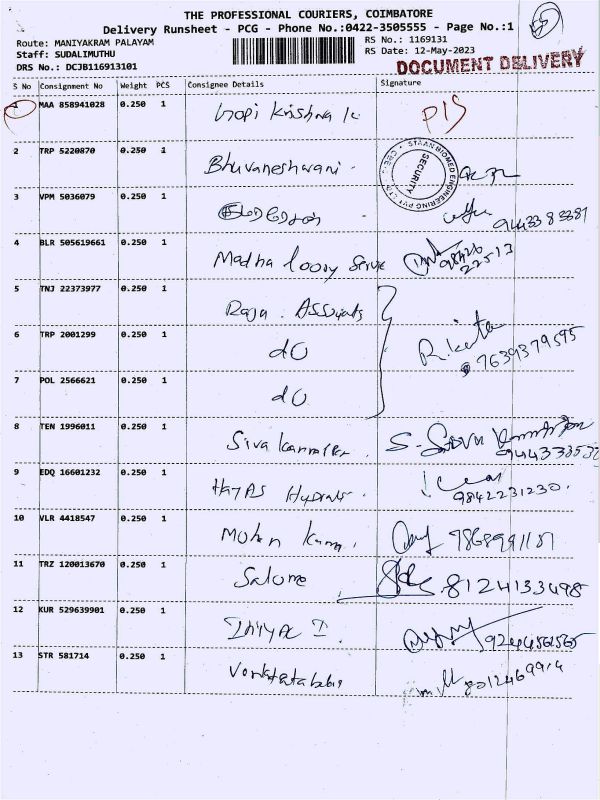 THE PROFESSIONAL COURIERS, COIMBATORE
Delivery Runsheet - PCG - Phone No.:0422-3505555 - Page No.:1
Route: MANIYAKRAM PALAYAM
RS No.: 1169131
Staff: SUDALIMUTHU
RS Date: 12-May-2023
DRS No.: DCJB116913101
DOCUMENT DELIVERY
S No Consignment No Weight PCS Consignee Details Signature
1 MAA 858941028 0.250 1 Gopi Krishna k P/S
2 TRP 5220870 0.250 1 Bhuvaneshwari
STAAN BIOMED ENGINEERING PVT LTD CBE SECURITY
3 VPM 5036079 0.250 1 9443383381
4 BLR 505619661 0.250 1 Madha loory 98426 22513
5 TNJ 22373977 0.250 1 Raja
6 TRP 2001299 0.250 1 do 7639379595
7 POL 2566621 0.250 1 do
8 TEN 1996011 0.250 1 Siva S.
9 EDQ 16601232 0.250 1 9842231230
10 VLR 4418547 0.250 1 Mohan
11 TRZ 120013670 0.250 1 Salome 8124133498
12 KUR 529639901 0.250 1
13 STR 581714 0.250 1